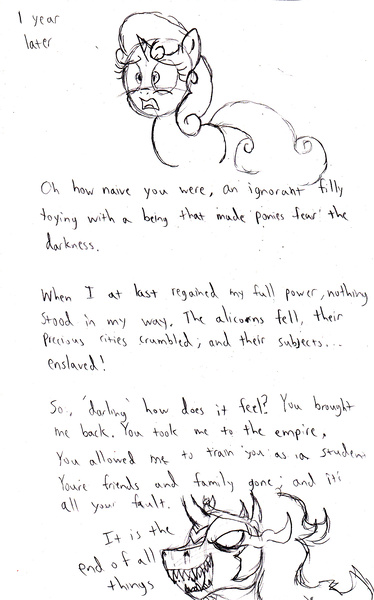 1 year
later
Oh how naive you were, an ignorant filly
toying with a being that made ponies fear the
darkness.
When I at last regained my full power, nothing
stood in my way. The alicorns fell, their
precious cities crumbled; and their subjects...
enslaved!
So, 'darling' how does it feel? You brought
me back. You took me to the empire,
You allowed me to train you as a student
You're friends and family gone; and it's
all your fault.
It is the
end of all
things